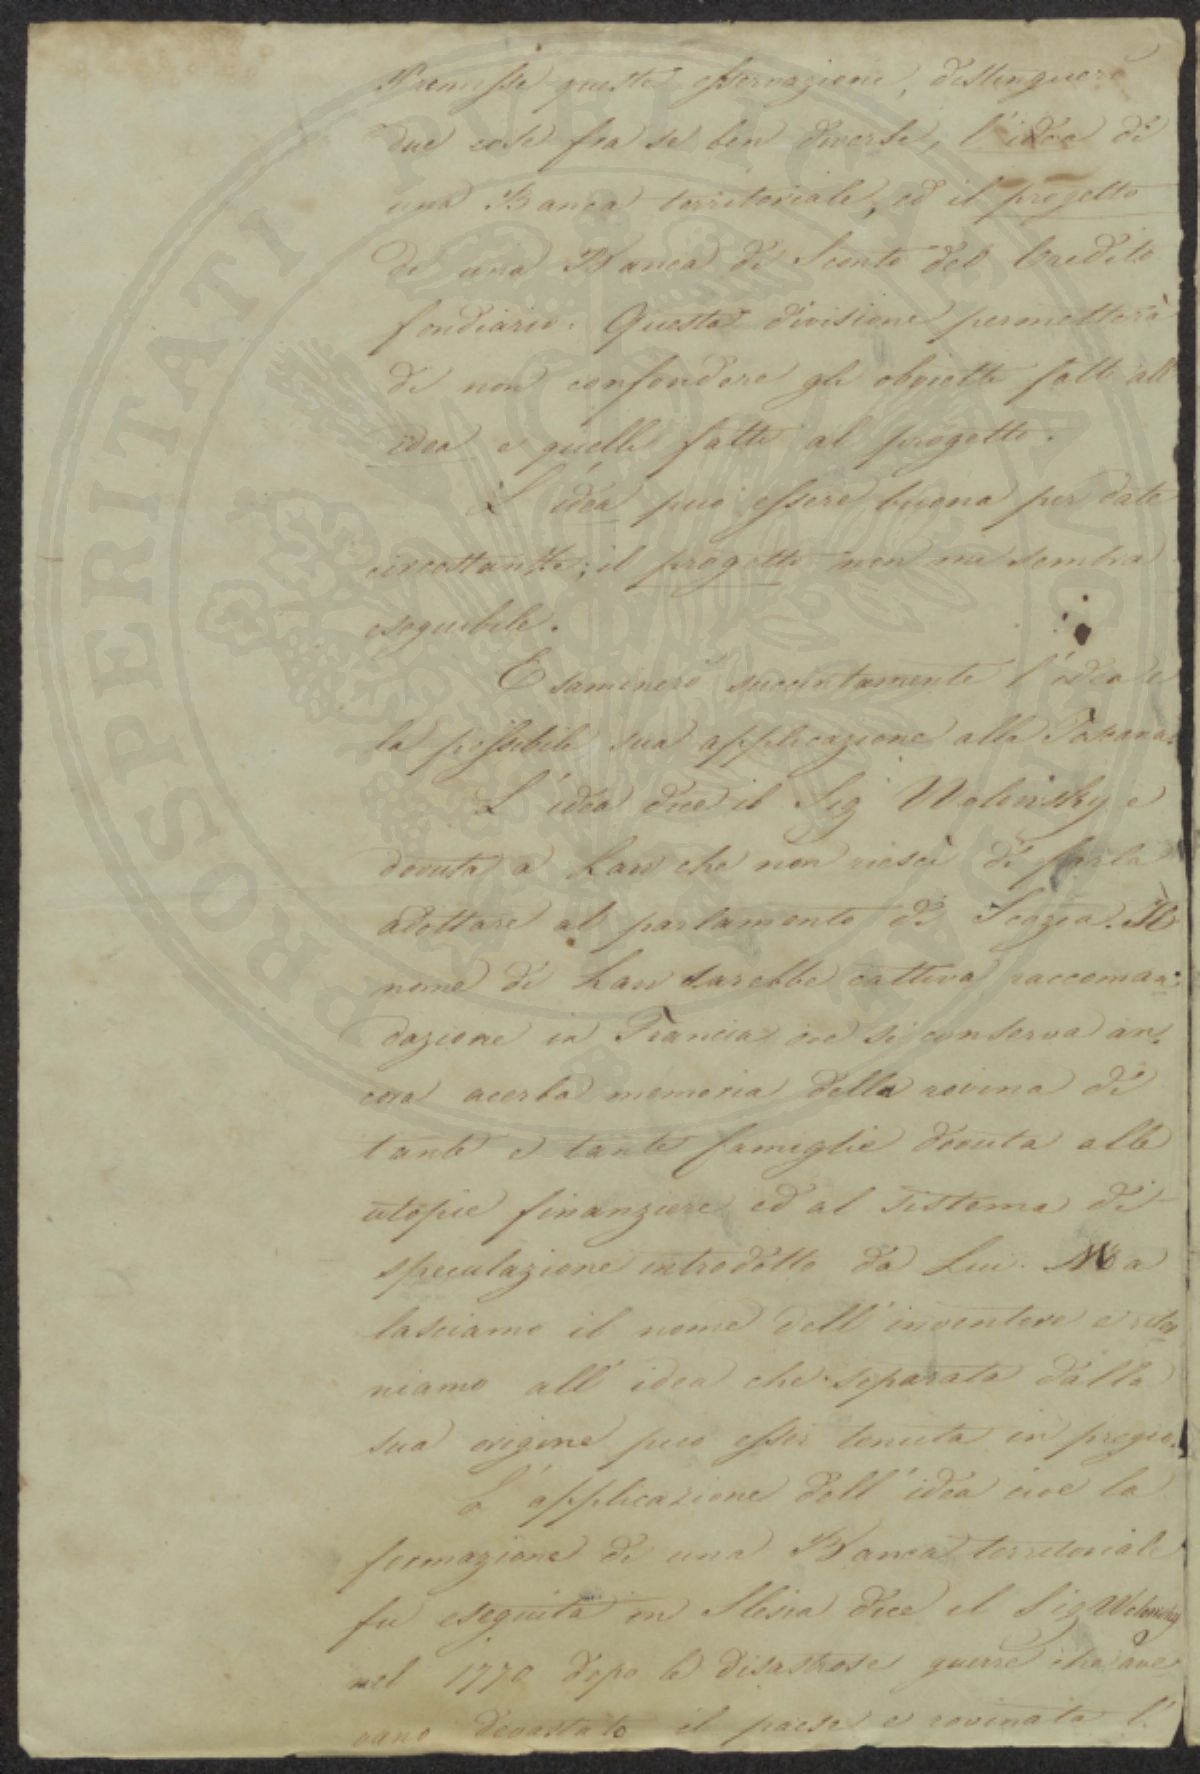 Premesse queste osservazioni, distinguerò
due cose fra se ben diverse, l'idea di
una Banca territoriale, ed il progetto
di una Banca di Sconto del Credito
fondiario. Questa divisione permetterà
di non confondere gli obietti fatti all'
idea e quelli fatti al progetto.
L'idea può essere buona per date
circostanze; il progetto non mi sembra
eseguibile.
Esaminerò succintamente l'idea e
la possibile sua applicazione alla Toscana.
L'idea dice il Sig Wolowsky è
dovuta a Law che non riescì di farla
adottare al parlamento di Scozia. Il
nome di Law sarebbe cattiva raccoman=
dazione in Francia ove si conserva an=
cora acerba memoria della rovina di
tante e tante famiglie dovuta alle
utopie finanziere ed al sistema di
speculazione introdotto da Lui. Ma
lasciamo il nome dell'inventore e ritor
niamo all'idea che separata dalla
sua origine può esser tenuta in pregio.
L'applicazione dell'idea cioè la
formazione di una Banca territoriale
fu eseguita in Slesia dice il Sig Wolowsky
nel 1770 dopo le disastrose guerre che ave
vano devastato il paese e rovinata l'
PROSPERITATI PVBLICAE